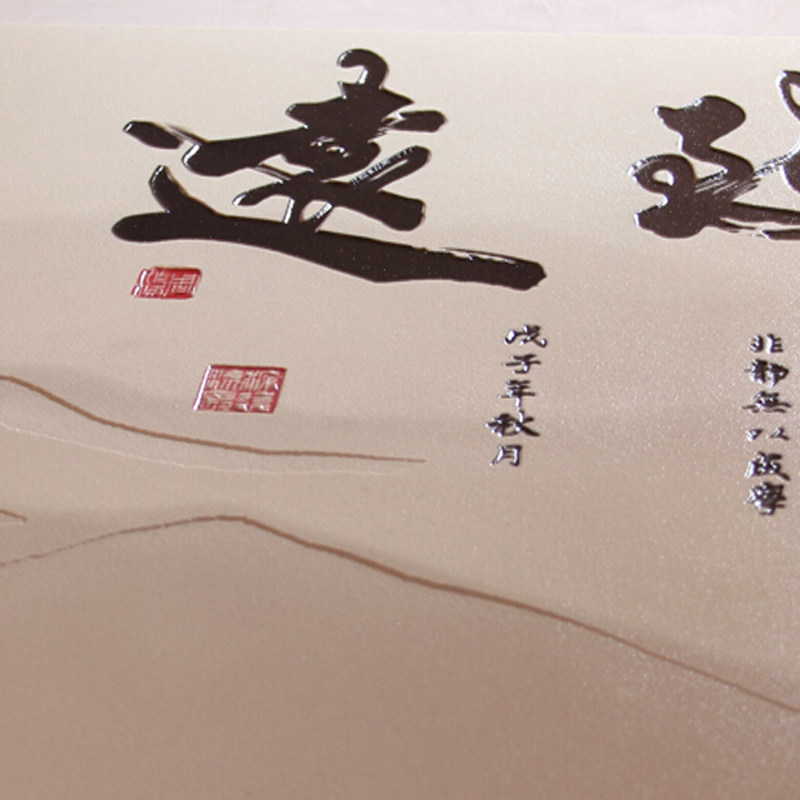 遠
非靜無以成學
戊子年秋月